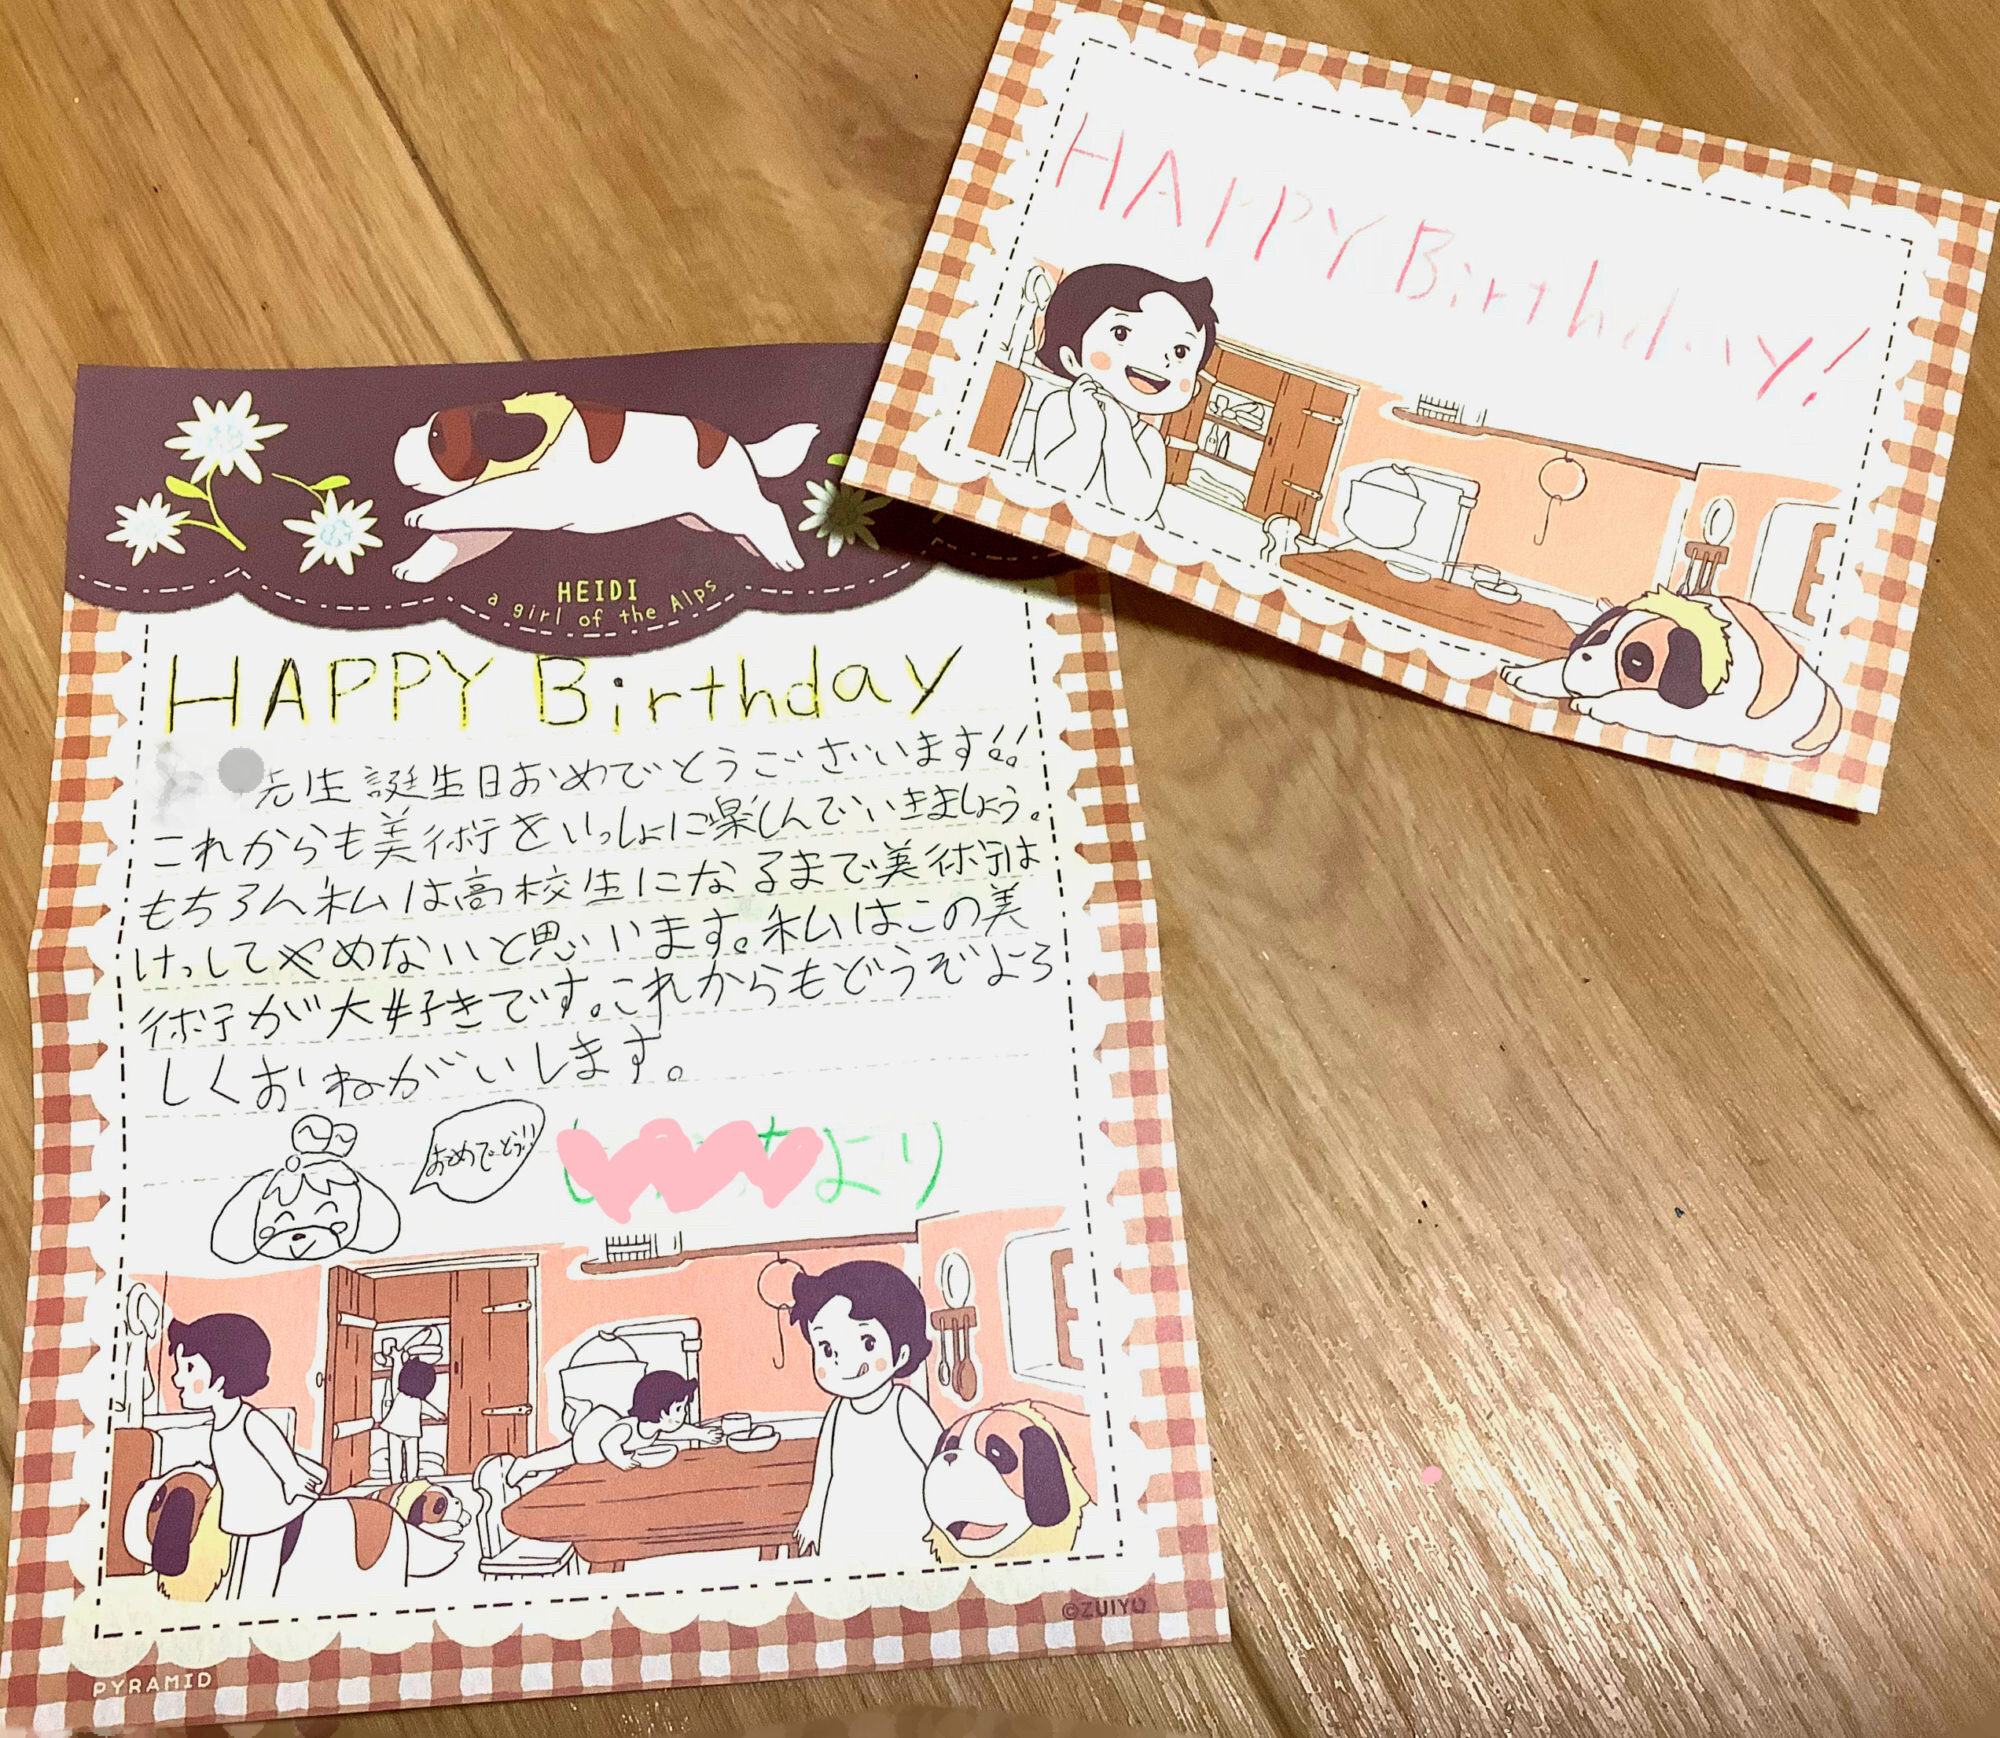 HAPPY Birthday!
HEIDI
a girl of the Alps
HAPPY Birthday
先生誕生日おめでとうございます!!
これからも美術をいっしょに楽しんでいきましょう。
もちろん私は高校生になるまで美術は
けっしてやめないと思います。私はこの美
術が大好きです。これからもどうぞよろ
しくおねがいします。
おめでとう!!
より
©ZUIYO
PYRAMID